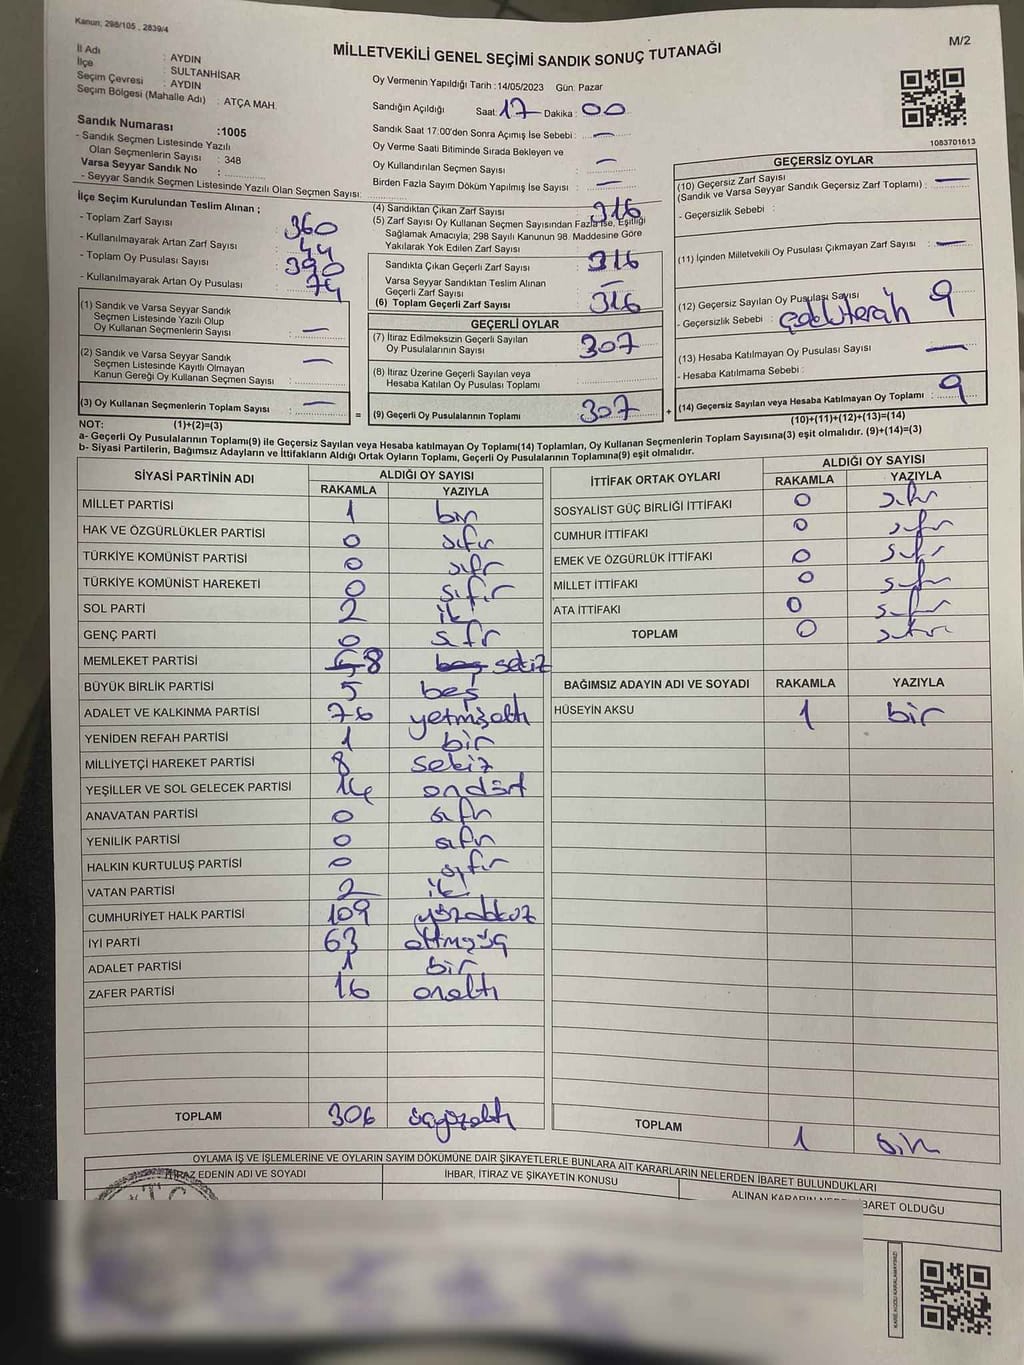 Kanun; 298/105 , 2839/4
MİLLETVEKİLİ GENEL SEÇİMİ SANDIK SONUÇ TUTANAĞI
M/2
İl Adı : AYDIN
İlçe : SULTANHİSAR
Seçim Çevresi : AYDIN
Seçim Bölgesi (Mahalle Adı) : ATÇA MAH.
Sandık Numarası :1005
- Sandık Seçmen Listesinde Yazılı
Olan Seçmenlerin Sayısı : 348
Varsa Seyyar Sandık No :
- Seyyar Sandık Seçmen Listesinde Yazılı Olan Seçmen Sayısı:
Oy Vermenin Yapıldığı Tarih :14/05/2023 Gün: Pazar
Sandığın Açıldığı Saat: 17 Dakika : 00
Sandık Saat 17:00'den Sonra Açımış İse Sebebi : —
Oy Verme Saati Bitiminde Sırada Bekleyen ve
Oy Kullandırılan Seçmen Sayısı : —
Birden Fazla Sayım Döküm Yapılmış İse Sayısı : —
1083701613
İlçe Seçim Kurulundan Teslim Alınan ;
- Toplam Zarf Sayısı : 360
- Kullanılmayarak Artan Zarf Sayısı : 44
- Toplam Oy Pusulası Sayısı : 390
- Kullanılmayarak Artan Oy Pusulası : 74
(1) Sandık ve Varsa Seyyar Sandık
Seçmen Listesinde Yazılı Olup
Oy Kullanan Seçmenlerin Sayısı : —
(2) Sandık ve Varsa Seyyar Sandık
Seçmen Listesinde Kayıtlı Olmayan
Kanun Gereği Oy Kullanan Seçmen Sayısı : —
(3) Oy Kullanan Seçmenlerin Toplam Sayısı : —
(1)+(2)=(3)
(4) Sandıktan Çıkan Zarf Sayısı : 316
(5) Zarf Sayısı Oy Kullanan Seçmen Sayısından Fazla İse, Eşitliği
Sağlamak Amacıyla; 298 Sayılı Kanunun 98. Maddesine Göre
Yakılarak Yok Edilen Zarf Sayısı :
Sandıkta Çıkan Geçerli Zarf Sayısı : 316
Varsa Seyyar Sandıktan Teslim Alınan
Geçerli Zarf Sayısı : —
(6) Toplam Geçerli Zarf Sayısı : 316
GEÇERLİ OYLAR
(7) İtiraz Edilmeksizin Geçerli Sayılan
Oy Pusulalarının Sayısı : 307
(8) İtiraz Üzerine Geçerli Sayılan veya
Hesaba Katılan Oy Pusulası Toplamı :
= (9) Geçerli Oy Pusulalarının Toplamı : 307 +
GEÇERSİZ OYLAR
(10) Geçersiz Zarf Sayısı
(Sandık ve Varsa Seyyar Sandık Geçersiz Zarf Toplamı) : —
- Geçersizlik Sebebi :
(11) İçinden Milletvekili Oy Pusulası Çıkmayan Zarf Sayısı : —
(12) Geçersiz Sayılan Oy Pusulası Sayısı : 9
- Geçersizlik Sebebi :
(13) Hesaba Katılmayan Oy Pusulası Sayısı : —
- Hesaba Katılmama Sebebi :
(14) Geçersiz Sayılan veya Hesaba Katılmayan Oy Toplamı : 9
(10)+(11)+(12)+(13)=(14)
NOT:
a- Geçerli Oy Pusulalarının Toplamı(9) ile Geçersiz Sayılan veya Hesaba katılmayan Oy Toplamı(14) Toplamları, Oy Kullanan Seçmenlerin Toplam Sayısına(3) eşit olmalıdır. (9)+(14)=(3)
b- Siyasi Partilerin, Bağımsız Adayların ve İttifakların Aldığı Ortak Oyların Toplamı, Geçerli Oy Pusulalarının Toplamına(9) eşit olmalıdır.
SİYASİ PARTİNİN ADI ALDIĞI OY SAYISI
RAKAMLA YAZIYLA
MİLLET PARTİSİ 1 bir
HAK VE ÖZGÜRLÜKLER PARTİSİ 0 sıfır
TÜRKİYE KOMÜNİST PARTİSİ 0 sıfr
TÜRKİYE KOMÜNİST HAREKETİ 0 sıfır
SOL PARTİ 2 iki
GENÇ PARTİ 0 sıfr
MEMLEKET PARTİSİ 8 beş sekiz
BÜYÜK BİRLİK PARTİSİ 5 beş
ADALET VE KALKINMA PARTİSİ 76 yetmişaltı
YENİDEN REFAH PARTİSİ 1 bir
MİLLİYETÇİ HAREKET PARTİSİ 8 sekiz
YEŞİLLER VE SOL GELECEK PARTİSİ 14 ondört
ANAVATAN PARTİSİ 0 sıfr
YENİLİK PARTİSİ 0 sıfr
HALKIN KURTULUŞ PARTİSİ 0 sıfır
VATAN PARTİSİ 2 iki
CUMHURİYET HALK PARTİSİ 109 yüzdokuz
İYİ PARTİ 63 altmışüç
ADALET PARTİSİ 1 bir
ZAFER PARTİSİ 16 onaltı
TOPLAM 306 üçyüzaltı
İTTİFAK ORTAK OYLARI ALDIĞI OY SAYISI
RAKAMLA YAZIYLA
SOSYALİST GÜÇ BİRLİĞİ İTTİFAKI 0 sıfır
CUMHUR İTTİFAKI 0 sıfr
EMEK VE ÖZGÜRLÜK İTTİFAKI 0 sıfr
MİLLET İTTİFAKI 0 sıfr
ATA İTTİFAKI 0 sıfr
TOPLAM 0 sıfır
BAĞIMSIZ ADAYIN ADI VE SOYADI RAKAMLA YAZIYLA
HÜSEYİN AKSU 1 bir
TOPLAM 1 bir
OYLAMA İŞ VE İŞLEMLERİNE VE OYLARIN SAYIM DÖKÜMÜNE DAİR ŞİKAYETLERLE BUNLARA AİT KARARLARIN NELERDEN İBARET BULUNDUKLARI
İTİRAZ EDENİN ADI VE SOYADI İHBAR, İTİRAZ VE ŞİKAYETİN KONUSU ALINAN KARARIN NEDEN İBARET OLDUĞU